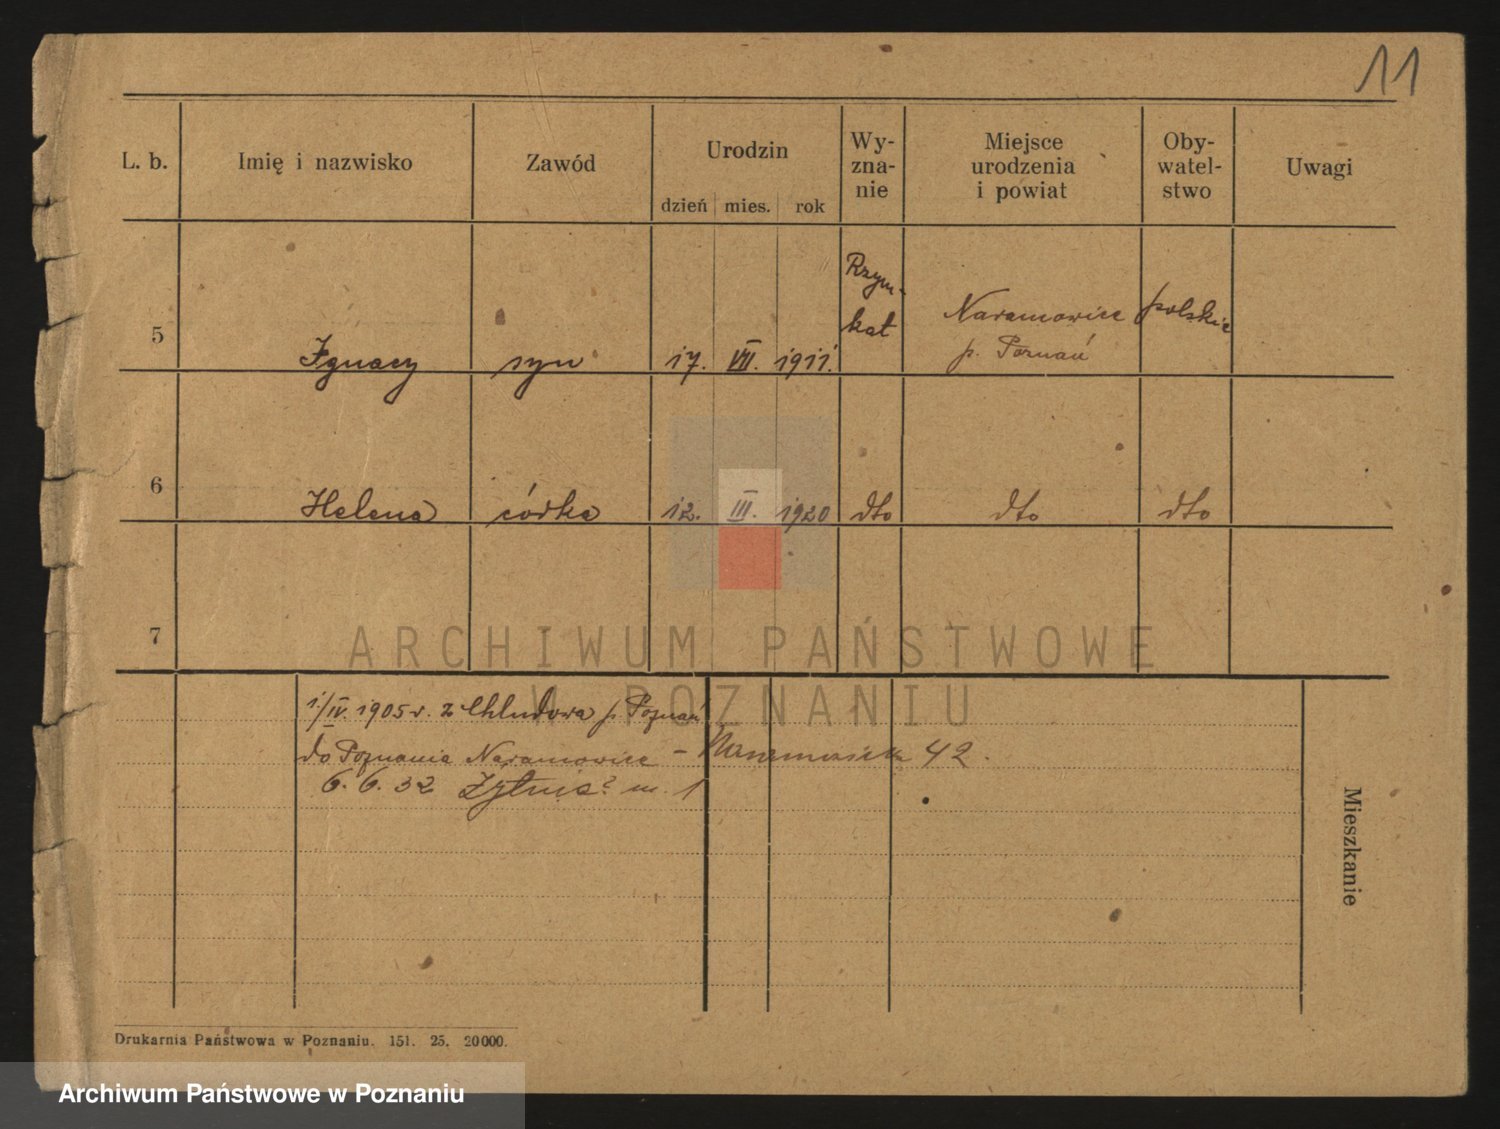 11
L. b. Imię i nazwisko Zawód Urodzin Wy-zna-nie Miejsce urodzenia i powiat Oby-watel-stwo Uwagi
dzień mies. rok
5 Ignacy syn 17. VII. 1911. Rzym-kat Naramowice p. Poznań polskie
6 Helena córka 12. III. 1920 dto dto dto
7
ARCHIWUM PAŃSTWOWE
W POZNANIU
1/IV. 1905 r. z Chludowa p. Poznań
do Poznania Naramowice - 42.
6. 6. 32 m. 1
Mieszkanie
Drukarnia Państwowa w Poznaniu. 151. 25. 20000.
Archiwum Państwowe w Poznaniu